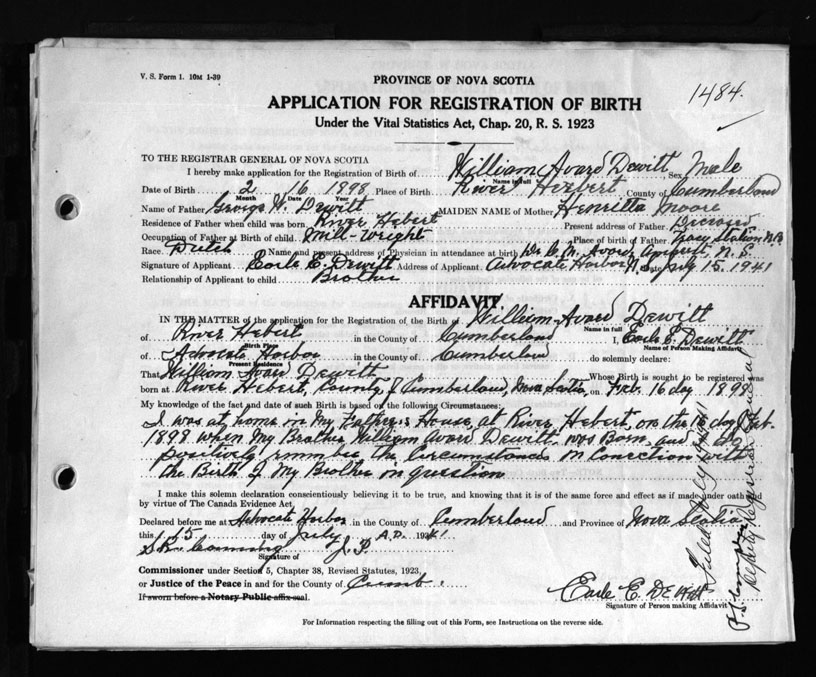 V. S. Form 1. 10M 1-39
PROVINCE OF NOVA SCOTIA
1484.
APPLICATION FOR REGISTRATION OF BIRTH
Under the Vital Statistics Act, Chap. 20, R. S. 1923
TO THE REGISTRAR GENERAL OF NOVA SCOTIA
I hereby make application for the Registration of Birth of William Avard Dewitt Sex Male
Name in full
Date of Birth 2 16 1898 Place of Birth River Hebert County of Cumberland
Month Date Year
Name of Father George W. Dewitt MAIDEN NAME of Mother Henritta Moore
Residence of Father when child was born River Hebert Present address of Father Deceased
Occupation of Father at Birth of child Mill-Wright Place of birth of Father Tracy Station N.B.
Race Dutch Name and present address of Physician in attendance at birth Dr. Avard, N.S.
Signature of Applicant Earle E. Dewitt Address of Applicant Advocate Harbor N.S. Date July 15. 1941
Relationship of Applicant to child Brother
AFFIDAVIT
IN THE MATTER of the application for the Registration of the Birth of William Avard Dewitt
Name in full
of River Hebert in the County of Cumberland I, Earle E. Dewitt
Birth Place Name of Person Making Affidavit
of Advocate Harbor in the County of Cumberland do solemnly declare:
Present Residence
That William Avard Dewitt Whose Birth is sought to be registered was
born at River Hebert, County of Cumberland, Nova Scotia, on Feb. 16 day 1898
My knowledge of the fact and date of such Birth is based on the following Circumstances:
I was at home in My Father's House, at River Hebert, on the 16 day of Feb.
1898 when My Brother William Avard Dewitt, was Born, and I do
positively rember the Circumstances in Conection with
the Birth of My Brother in question
I make this solemn declaration conscientiously believing it to be true, and knowing that it is of the same force and effect as if made under oath and
by virtue of The Canada Evidence Act,
Declared before me at Advocate Harbor in the County of Cumberland and Province of Nova Scotia
this 15 day of July A.D. 1941
J. P.
Signature of
Commissioner under Section 5, Chapter 38, Revised Statutes, 1923,
or Justice of the Peace in and for the County of Cumb.
If sworn before a Notary Public affix seal.
Earle E. Dewitt
Signature of Person making Affidavit
For Information respecting the filling out of this Form, see Instructions on the reverse side.
Filed July
Deputy Registrar General